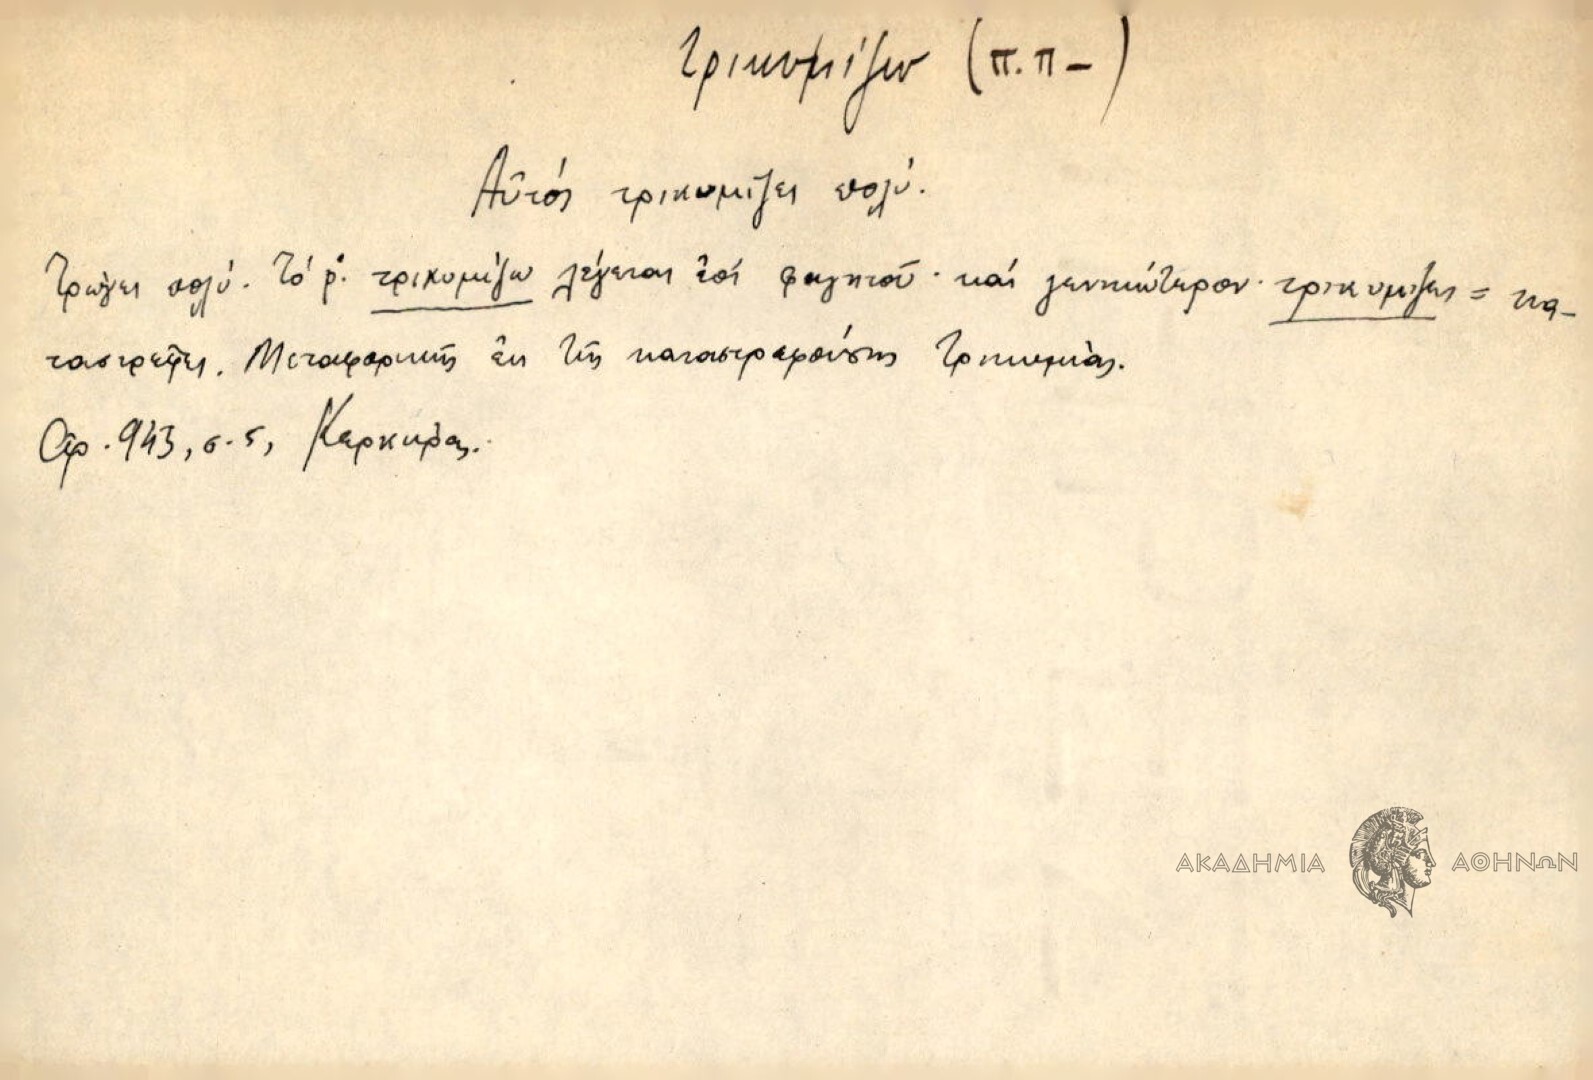 τρικυμίζω (π.π-)
Αὐτός τρικυμίζει πολύ.
Τρώγει πολύ. Τό ρ. τρικυμίζω λέγεται ἐπί φαγητοῦ· καί γενικώτερον· τρικυμίζει = κα-
ταστρέφει. Μεταφορικῶς ἐκ τῆς καταστρεφούσης τρικυμίας.
943, σ. 5, Κερκύρας.
ΑΚΑΔΗΜΙΑ ΑΘΗΝΩΝ